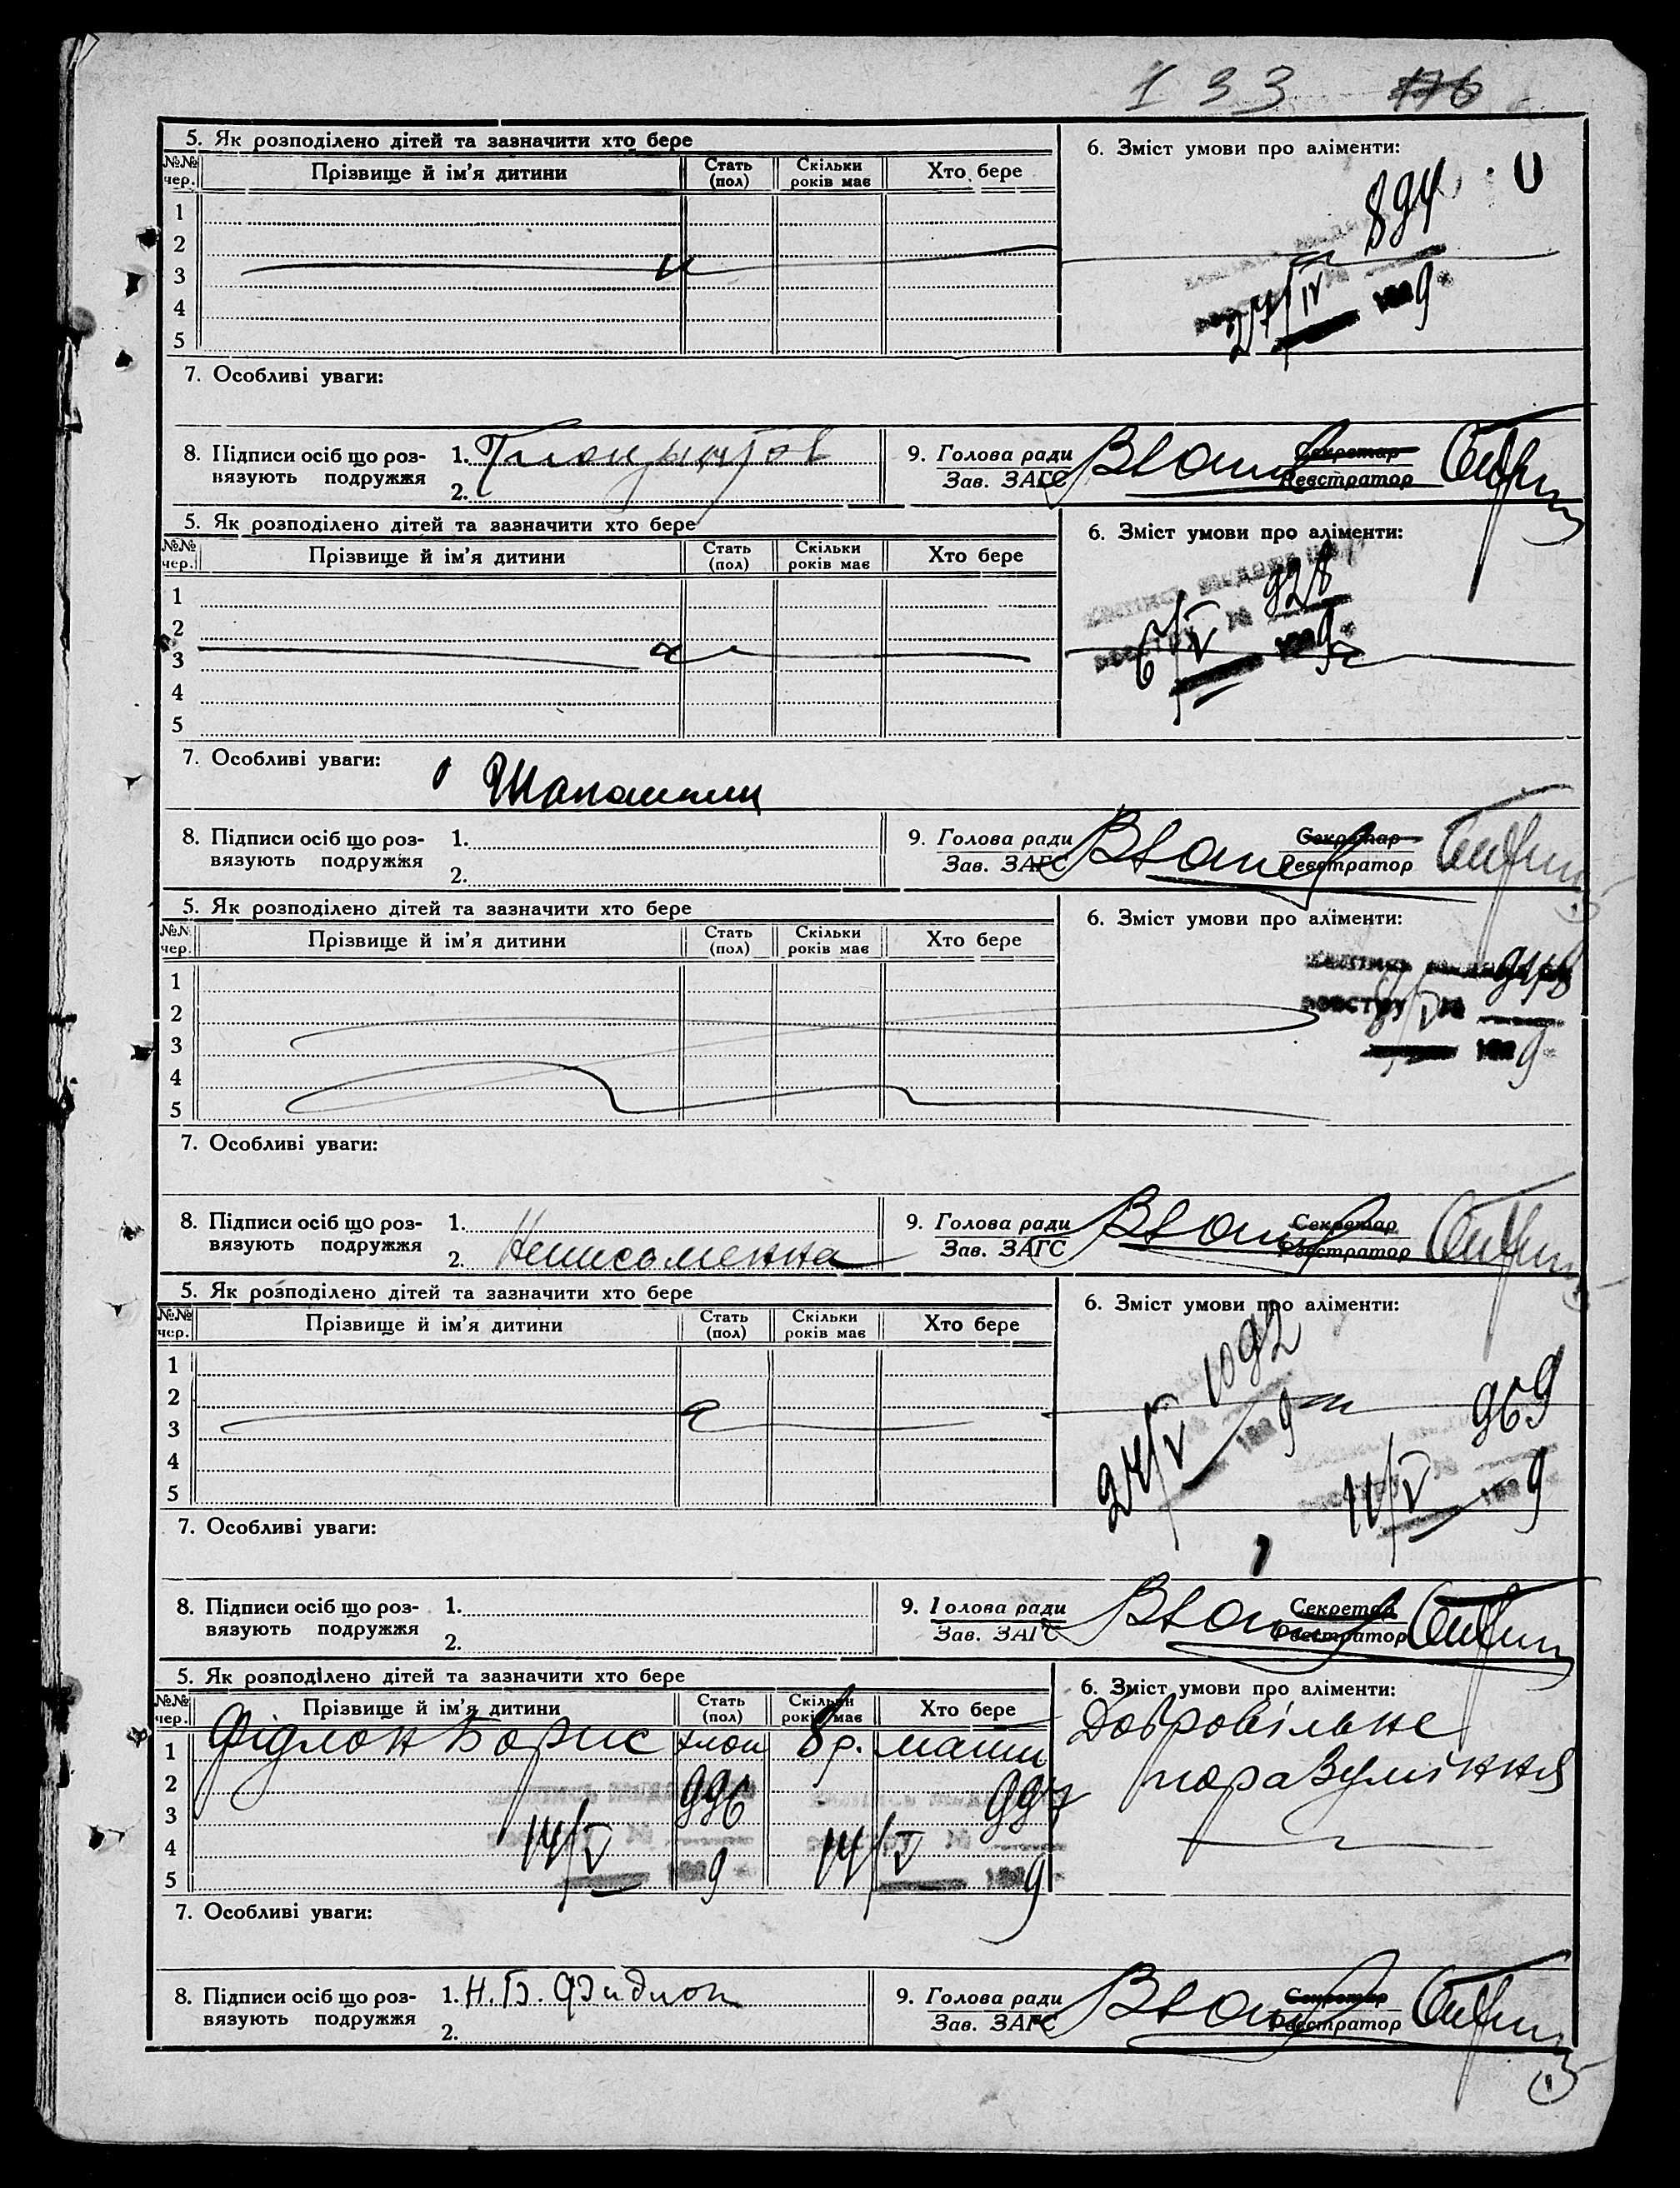 133 176
5. Як розподілено дітей та зазначити хто бере
6. Зміст умови про аліменти:
№№ чер. Прізвище й ім'я дитини Стать (пол) Скільки років має Хто бере
894
1
2
3
27/IV 9
4
5
7. Особливі уваги:
8. Підписи осіб що роз-вязують подружжя
1.
2.
9. Голова ради
Зав. ЗАГС
Секретар
Реєстратор
5. Як розподілено дітей та зазначити хто бере
6. Зміст умови про аліменти:
№№ чер. Прізвище й ім'я дитини Стать (пол) Скільки років має Хто бере
928
1
2
6/V 9
3
4
5
7. Особливі уваги:
8. Підписи осіб що роз-вязують подружжя
1.
2.
9. Голова ради
Зав. ЗАГС
Секретар
Реєстратор
5. Як розподілено дітей та зазначити хто бере
6. Зміст умови про аліменти:
№№ чер. Прізвище й ім'я дитини Стать (пол) Скільки років має Хто бере
1
реєстру №
2
3
4
5
7. Особливі уваги:
8. Підписи осіб що роз-вязують подружжя
1.
2. Неписьменна
9. Голова ради
Зав. ЗАГС
Секретар
Реєстратор
5. Як розподілено дітей та зазначити хто бере
6. Зміст умови про аліменти:
№№ чер. Прізвище й ім'я дитини Стать (пол) Скільки років має Хто бере
1092
1
969
2
3
24/V 9
4
11/V 9
5
7. Особливі уваги:
8. Підписи осіб що роз-вязують подружжя
1.
2.
9. Голова ради
Зав. ЗАГС
Секретар
Реєстратор
5. Як розподілено дітей та зазначити хто бере
6. Зміст умови про аліменти:
№№ чер. Прізвище й ім'я дитини Стать (пол) Скільки років має Хто бере
Добровільне
1 Фідлон Борис хлоп 8 р. мати
поразуміння
2 996 997
3
4 14/V 14/V
5 9 9
7. Особливі уваги:
8. Підписи осіб що роз-вязують подружжя
1. Н. Б. Фидлон
2.
9. Голова ради
Зав. ЗАГС
Секретар
Реєстратор